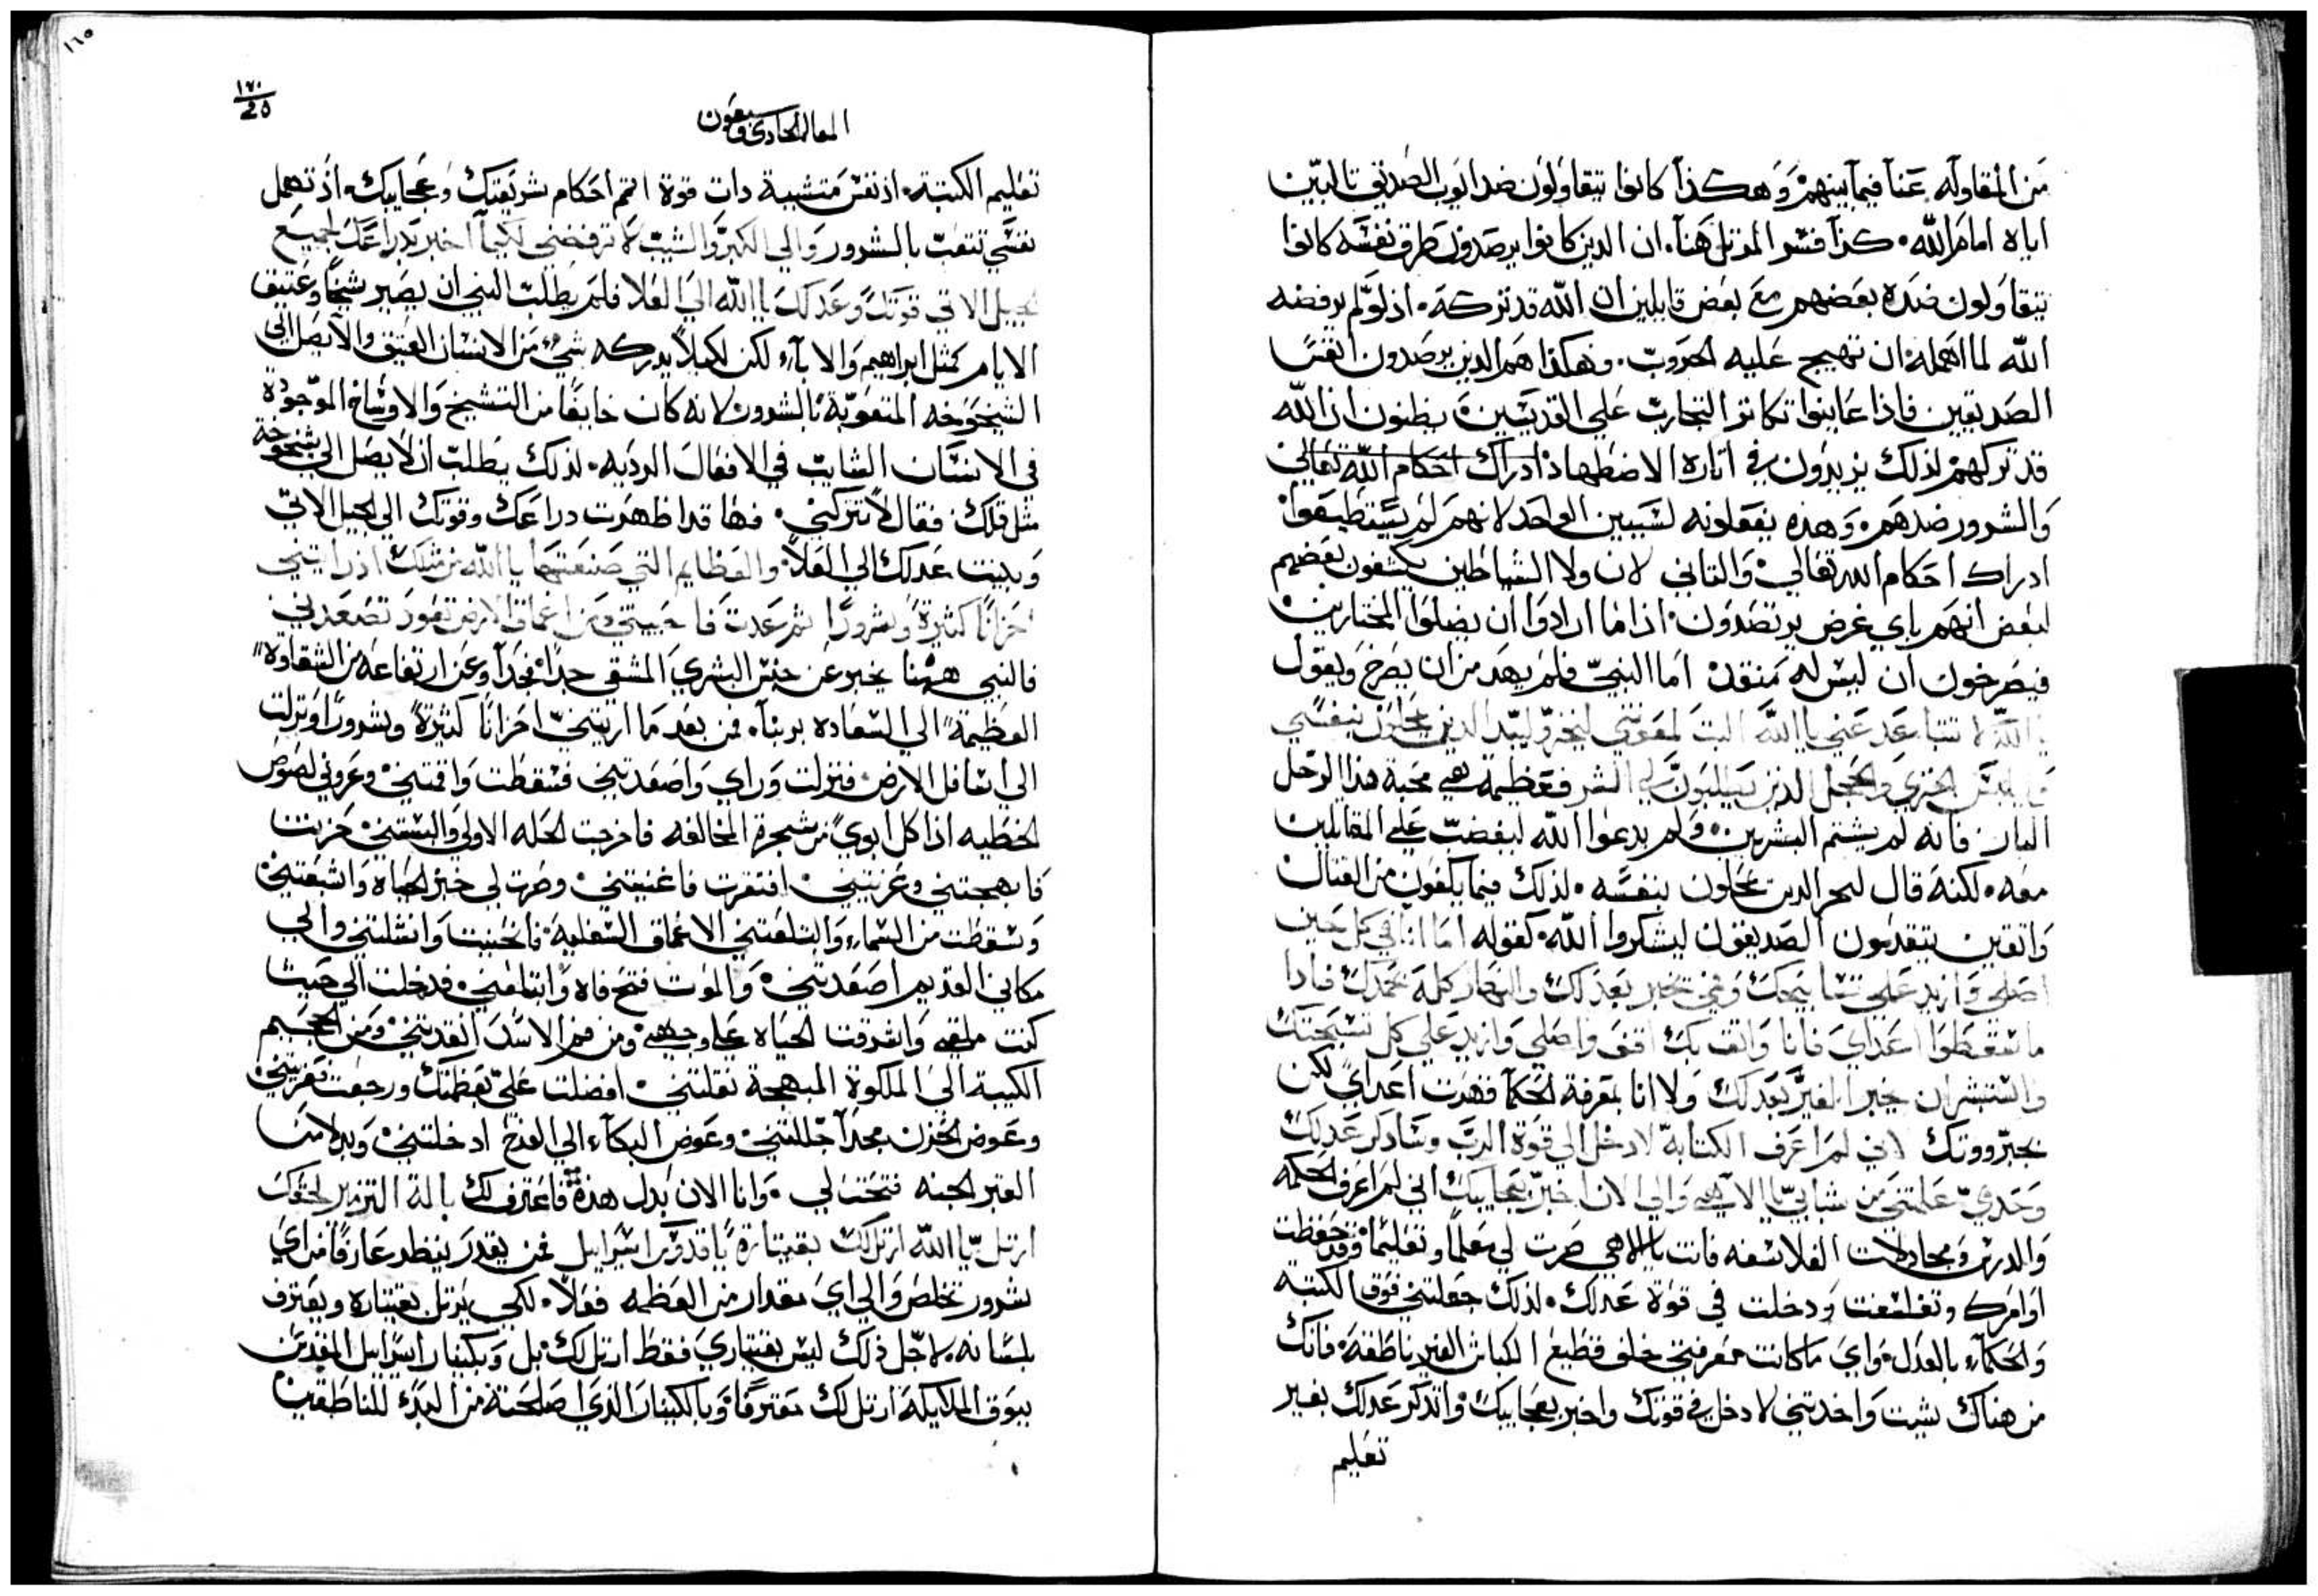 من المقاوله عنا فيما بينهم وهكذا كانوا يتقاولون ضد ايوب الصديق تالبين
اياه امام الله كذا فسر المرتل هنا ان الدين كانوا يرصدون طرق نفسه كانوا
يتقاولون ضده بعضهم مع بعض قايلين ان الله قد تركه اذ لو لم يرفضه
الله لما اهمله ان تهيج عليه الحروب وهكذا هم الدين يرصدون انفس
الصديقين فاذا عاينوا تكاتر التجارب على القديسين يظنون ان الله
قد تركهم لذلك يزيدون في اتارة الاضطهاد ادراك احكام الله تعالى
والشرور ضدهم وهذه يفعلونه لسببين الواحد لانهم لم يستطيعوا
ادراك احكام الله تعالى والتاني لان ولا الشياطين يكشفون بعضهم
لبعض انهم باي غرض يرتصدون اذا ما ارادوا ان يضلوا المختارين
فيصرخون ان ليس له منقد اما النبي فلم يهد من ان يصرخ ويقول
يا الله لا تتباعد عني يا الله التفت لمعونتي ليخز وليبد الدين يمحلون بنفسي
الخزي والخجل الدين يطلبون لي الشر فعظيمة هي محبة هذا الرجل
البار فانه لم يشتم البشرين ولم يدعوا الله ليغضب على المقاتلين
معه لكنه قال ليخز الدين يمحلون بنفسه لذلك فيما يكفون من القتال
واتقين يتقدمون الصديقون ليشكروا الله كقوله اما انا في كل حين
اصلي وازيد على تسابيحك وفمي يخبر بعدلك والنهار كله بمجدك فاذا
ما سقطوا اعداي فانا واتق بك اقف واصلي وازيد على كل تسبحتك
واستبشر ان خبر الفير بعدلك ولا انا بمعرفة الحكما قهرت اعداي لكن
بجبرووتك لاني لم اعرف الكتابة لادخل الى قوة الرب وساذكر عدلك
وحدك علمتني من شبابي يا الاهي والى الان اخبر بعجايبك اني لم اعرف الحكمه
والدرس ومجادلات الفلاسفه فانت يا الاهي صرت لي معلما وتعليما وقد حفظت
اوامرك وتفلسفت ودخلت في قوة عدلك لذلك جعلتني فوق الكتبه
والحكماء بالعدل واي ما كانت معرفتي خلف قطيع الكباش الغير ناطقة فانك
من هناك بشت واخدتني لادخل في قوتك واخبر بعجايبك واتذكر عدلك بغير
تعليم
١٦٥
١٧٠
25
المقاله الحادي وسبعون
تعليم الكتبة اذ نفس متشببة دات قوة اتم احكام شريعتك وعجايبك اذ تهمل
نفسي تتعب بالشرور والى الكبر والشيب لا ترفضني لكيما اخبر بذراعك لجميع
الجيل الاتي قوتك وعدلك يا الله الى العلا فلم يطلب النبي ان يصير شيخا وعتيق
الايام كمثل ابراهيم والاباء لكن لكيلا يدركه شيء من الانسان العتيق والا يصل الى
الشيخوخه المتعوبة بالشرور لانه كان خايفا من التشيخ والاوساخ الموجودة
في الانسان الشايب في الافعال الرديه لذلك يطلب ان لا يصل الى شيخوخة
مثل تلك فقال لا تتركني فها قد اظهرت دراعك وقوتك الى الجيل الاتي
وبينت عدلك الى العلا والعظايم التي صنعتها يا الله من مثلك اذ اريتني
احزانا كثيرة وشرورا ثم عدت فاحييتني ومن اعماق الارض تعود تصعدني
فالنبي ههنا يخبر عن جنس البشري المشقي جدا جدا وعن ارتفاعه من الشقاوة
العظيمة الى السعاده بربنا فمن بعد ما اريتني احزانا كثيرة وشرورا ونزلت
الى اسافل الارض فنزلت وراي واصعدتني فسقطت واقمتني وعروني لصوص
الخطيه اذ اكل ابوي من شجرة المخالفه فاخرجت الحله الاولى والبستني حزنت
فابهجتني وعزيتني افتقرت فاغنيتني وصرت لي خبز الحياة واشبعتني
وسقطت من السماء وابتلعتني الاعماق السفلية فانحنيت وانشلتني والى
مكاني القديم اصعدتني والموت فتح فاه وابتلعني فدخلت الى حيث
كنت ملقى واشرقت الحياه على وجهي ومن فم الاسد انقدتني ومن الجحيم
الكيبة الى الملكوة المبهجة نقلتني افضلت على بعظمتك ورجعت تعزيتني
وعوض الحزن مجدا جللتني وعوض البكاء الى الفرح ادخلتني وبدلا من
القبر الجنه فتحت لي وانا الان بدل هذه فاعترف لك بالة التزمير لحقك
ارتل يا الله ارتل لك بقيتارة يا قدوس اسراييل فمن يقدر ينظر عارفا من اي
شرور تخلص والى اي مقدار من العظمه فعلا لكي يرتل بقيتاره ويعترف
بلسانه لاجل ذلك ليس بقيتاري فقط ارتل لك بل وبكينار اسراييل المقدس
ببوق الملايكة ارتل لك معترفا وبالكينار الذي اصلحته من البدء للناطقين